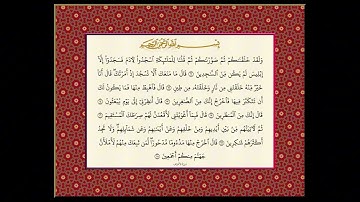 بسم الله الرحمن الرحيم
ولقد خلقنكم ثم صورنكم ثم قلنا للملئكة اسجدوا لءادم فسجدوا إلا
إبليس لم يكن من السجدين قال ما منعك ألا تسجد إذ أمرتك قال أنا
خير منه خلقتني من نار وخلقته من طين قال فاهبط منها فما يكون لك
أن تتكبر فيها فاخرج إنك من الصغرين قال أنظرني إلى يوم يبعثون
قال إنك من المنظرين قال فبما أغويتني لأقعدن لهم صرطك المستقيم
ثم لءاتينهم من بين أيديهم ومن خلفهم وعن أيمنهم وعن شمائلهم ولا تجد
أكثرهم شكرين قال اخرج منها مذءوما مدحورا لمن تبعك منهم لأملأن
جهنم منكم أجمعين